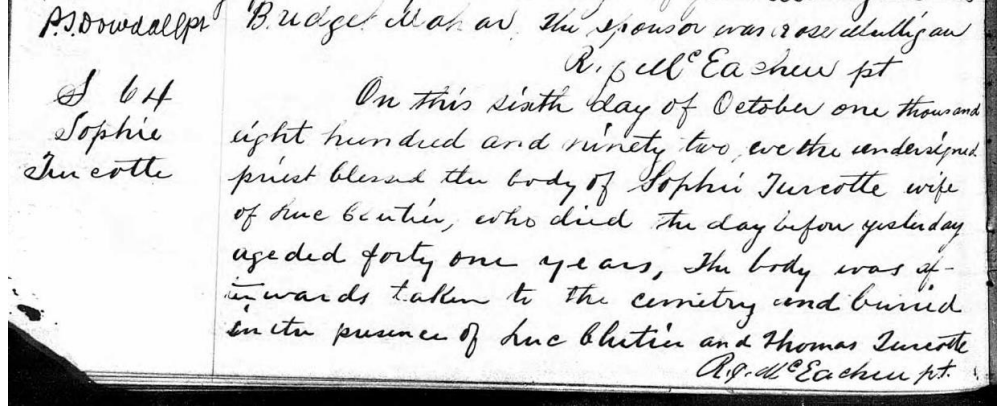 P.S. Dowdall pt
Bridget Mahar, The sponsor was rose Mulligan
R. J. McEachen pt
S 64
Sophie
Turcotte
On this sixth day of October one thousand
eight hundred and ninety two, we the undersigned
priest blessed the body of Sophie Turcotte wife
of Luc Cloutier, who died the day before yesterday
ageded forty one years, The body was af-
terwards taken to the cemetry and buried
in the presence of Luc Clutier and Thomas Turcotte
R. J. McEachen pt.